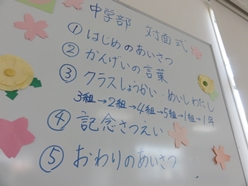 中学部 対面式
① はじめのあいさつ
② かんげいの言葉
③ クラスしょうかい・めいしわたし
3組→2組→4組→5組→1組→1年
④ 記念さつえい
⑤ おわりのあいさつ